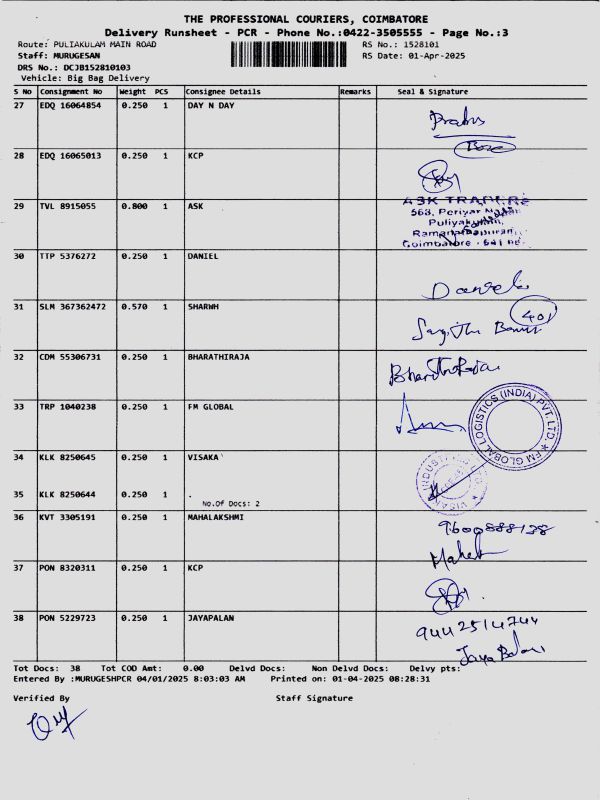 THE PROFESSIONAL COURIERS, COIMBATORE
Delivery Runsheet - PCR - Phone No.:0422-3505555 - Page No.:3
Route: PULIAKULAM MAIN ROAD RS No.: 1528101
Staff: MURUGESAN RS Date: 01-Apr-2025
DRS No.: DCJB152810103
Vehicle: Big Bag Delivery
S No Consignment No Weight PCS Consignee Details Remarks Seal & Signature
27 EDQ 16064854 0.250 1 DAY N DAY
28 EDQ 16065013 0.250 1 KCP
29 TVL 8915055 0.800 1 ASK
ASK TRADERS
568, Periyar Nagar
Puliyakulam,
Ramanathapuram,
Coimbatore - 641
30 TTP 5376272 0.250 1 DANIEL
31 SLM 367362472 0.570 1 SHARWH
401
32 CDM 55306731 0.250 1 BHARATHIRAJA
Bharathiraja
33 TRP 1040238 0.250 1 FM GLOBAL
FM GLOBAL LOGISTICS (INDIA) PVT. LTD.
34 KLK 8250645 0.250 1 VISAKA
35 KLK 8250644 0.250 1 .
No.Of Docs: 2
36 KVT 3305191 0.250 1 MAHALAKSHMI
9600888138
37 PON 8320311 0.250 1 KCP
38 PON 5229723 0.250 1 JAYAPALAN
9442514744
Tot Docs: 38 Tot COD Amt: 0.00 Delvd Docs: Non Delvd Docs: Delvy pts:
Entered By :MURUGESHPCR 04/01/2025 8:03:03 AM Printed on: 01-04-2025 08:28:31
Verified By Staff Signature